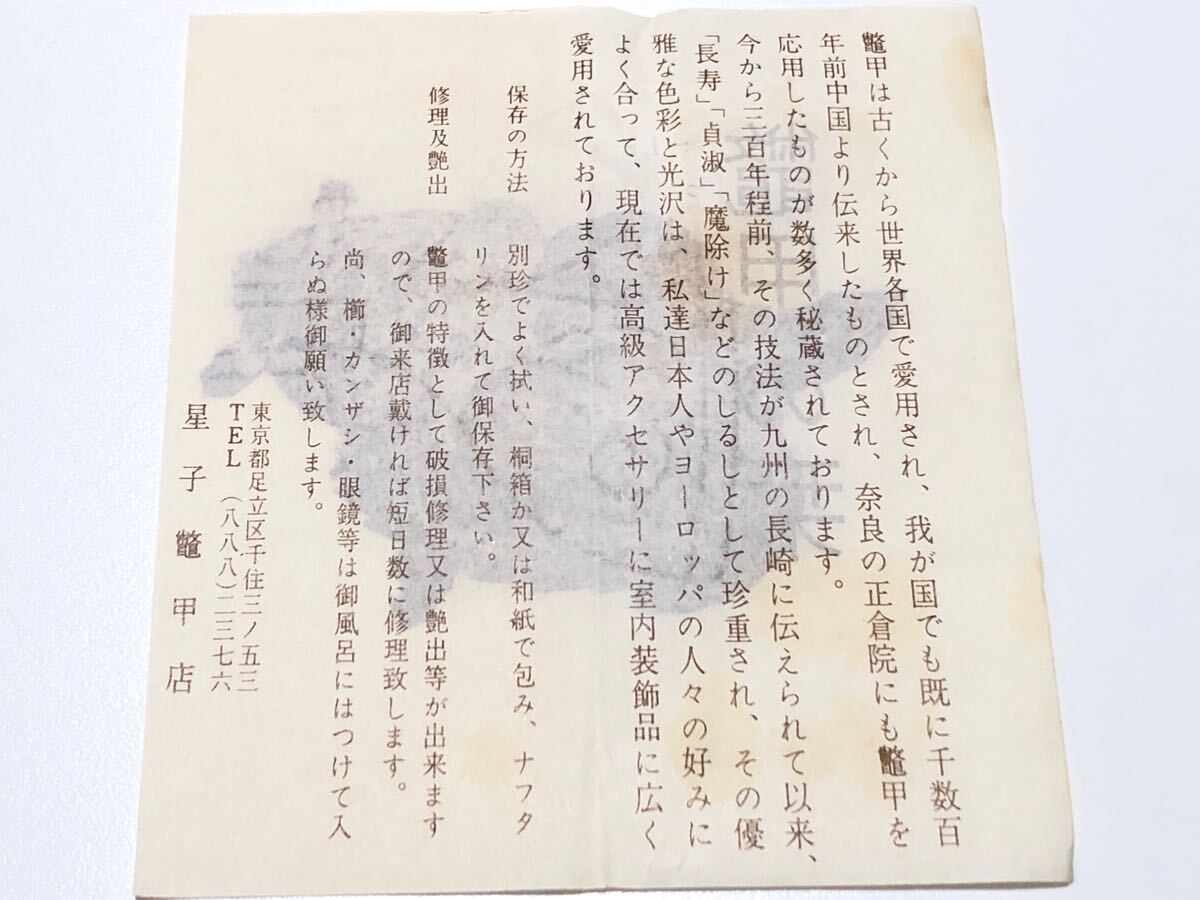 鼈甲は古くから世界各国で愛用され、我が国でも既に千数百
年前中国より伝来したものとされ、奈良の正倉院にも鼈甲を
応用したものが数多く秘蔵されております。
今から三百年程前、その技法が九州の長崎に伝えられて以来、
「長寿」「貞淑」「魔除け」などのしるしとして珍重され、その優
雅な色彩と光沢は、私達日本人やヨーロッパの人々の好みに
よく合って、現在では高級アクセサリーに室内装飾品に広く
愛用されております。
保存の方法　別珍でよく拭い、桐箱か又は和紙で包み、ナフタ
リンを入れて御保存下さい。
修理及艶出　鼈甲の特徴として破損修理又は艶出等が出来ます
ので、御来店戴ければ短日数に修理致します。
尚、櫛・カンザシ・眼鏡等は御風呂にはつけて入
らぬ様御願い致します。
東京都足立区千住三ノ五三
TEL（八八八）二三七六
星子鼈甲店